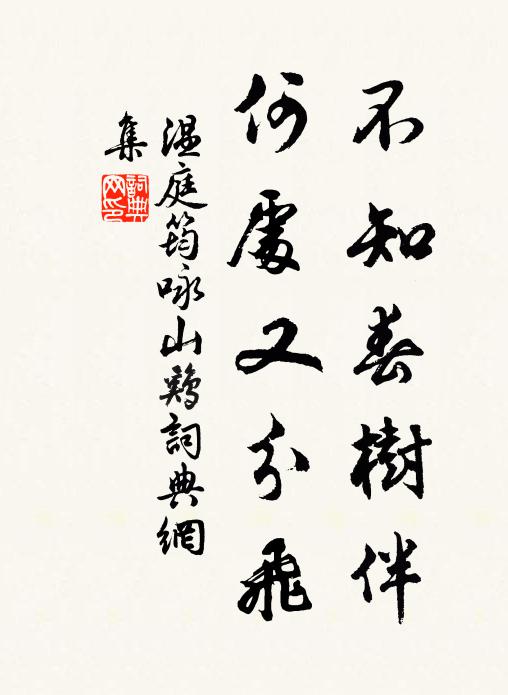 不知春樹伴
何處又分飛
溫庭筠咏山鷄詞典網
集
詞典網印